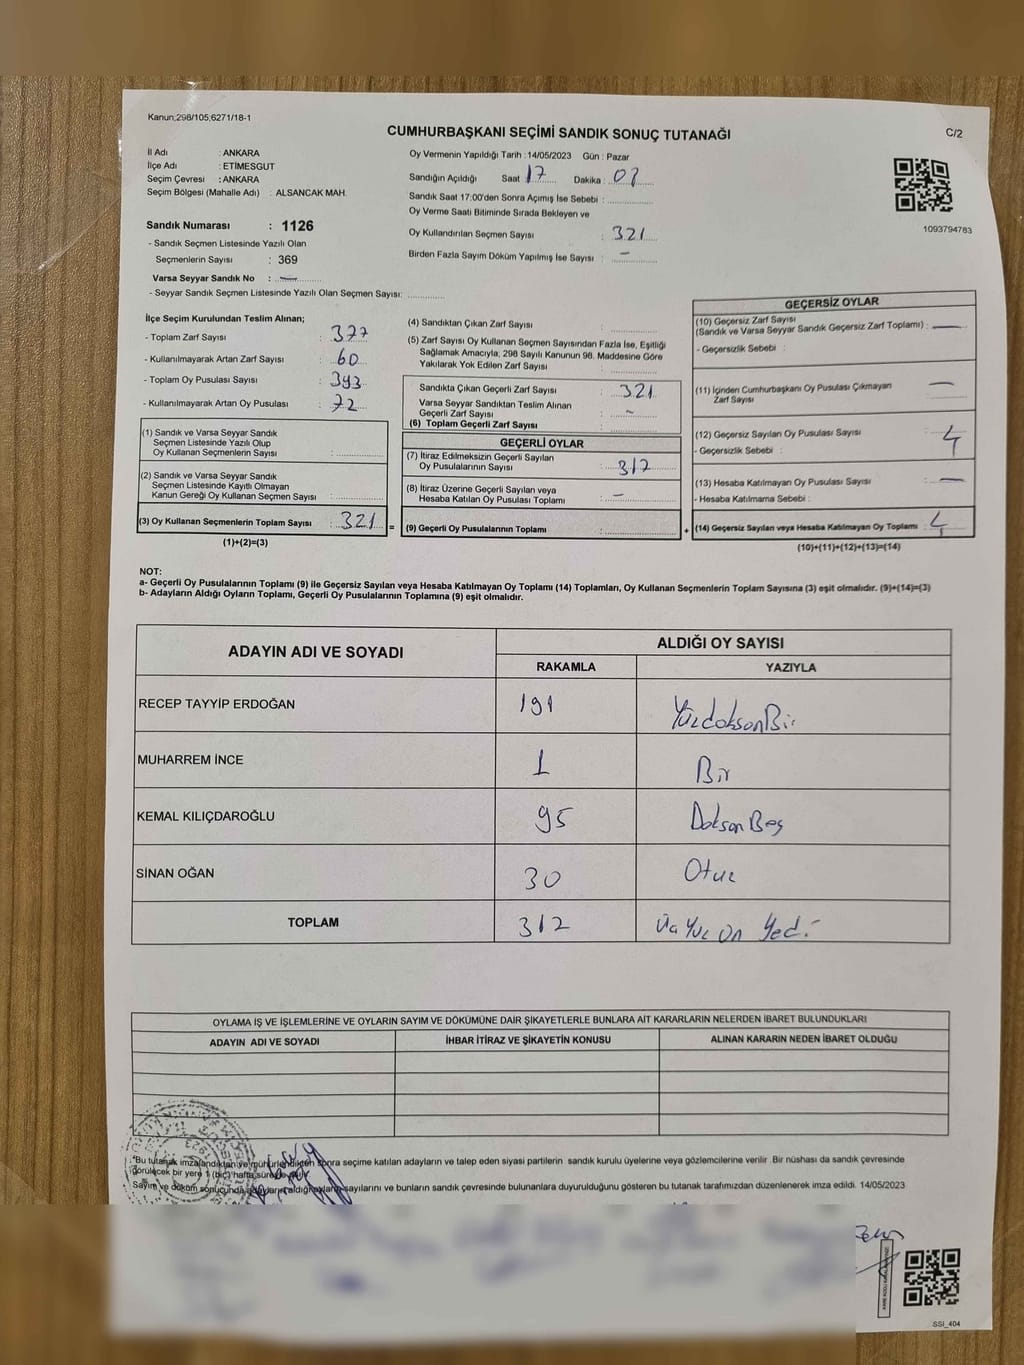 Kanun;298/105;6271/18-1
CUMHURBAŞKANI SEÇİMİ SANDIK SONUÇ TUTANAĞI
C/2
İl Adı : ANKARA
İlçe Adı : ETİMESGUT
Seçim Çevresi : ANKARA
Seçim Bölgesi (Mahalle Adı) : ALSANCAK MAH.
Sandık Numarası : 1126
- Sandık Seçmen Listesinde Yazılı Olan
Seçmenlerin Sayısı : 369
Varsa Seyyar Sandık No : —
- Seyyar Sandık Seçmen Listesinde Yazılı Olan Seçmen Sayısı: ............
Oy Vermenin Yapıldığı Tarih : 14/05/2023 Gün : Pazar
Sandığın Açıldığı Saat 17 Dakika : 07
Sandık Saat 17:00'den Sonra Açımış İse Sebebi :
Oy Verme Saati Bitiminde Sırada Bekleyen ve
Oy Kullandırılan Seçmen Sayısı : 321
Birden Fazla Sayım Döküm Yapılmış İse Sayısı : —
1093794783
İlçe Seçim Kurulundan Teslim Alınan;
- Toplam Zarf Sayısı : 377
- Kullanılmayarak Artan Zarf Sayısı : 60
- Toplam Oy Pusulası Sayısı : 393
- Kullanılmayarak Artan Oy Pusulası : 72
(1) Sandık ve Varsa Seyyar Sandık
Seçmen Listesinde Yazılı Olup
Oy Kullanan Seçmenlerin Sayısı :
(2) Sandık ve Varsa Seyyar Sandık
Seçmen Listesinde Kayıtlı Olmayan
Kanun Gereği Oy Kullanan Seçmen Sayısı :
(3) Oy Kullanan Seçmenlerin Toplam Sayısı : 321 =
(1)+(2)=(3)
(4) Sandıktan Çıkan Zarf Sayısı :
(5) Zarf Sayısı Oy Kullanan Seçmen Sayısından Fazla İse, Eşitliği
Sağlamak Amacıyla, 298 Sayılı Kanunun 98. Maddesine Göre
Yakılarak Yok Edilen Zarf Sayısı :
Sandıkta Çıkan Geçerli Zarf Sayısı : 321
Varsa Seyyar Sandıktan Teslim Alınan
Geçerli Zarf Sayısı : –
(6) Toplam Geçerli Zarf Sayısı :
GEÇERLİ OYLAR
(7) İtiraz Edilmeksizin Geçerli Sayılan
Oy Pusulalarının Sayısı : 317
(8) İtiraz Üzerine Geçerli Sayılan veya
Hesaba Katılan Oy Pusulası Toplamı : –
(9) Geçerli Oy Pusulalarının Toplamı : +
GEÇERSİZ OYLAR
(10) Geçersiz Zarf Sayısı
(Sandık ve Varsa Seyyar Sandık Geçersiz Zarf Toplamı) : —
- Geçersizlik Sebebi :
(11) İçinden Cumhurbaşkanı Oy Pusulası Çıkmayan
Zarf Sayısı : —
(12) Geçersiz Sayılan Oy Pusulası Sayısı : 4
- Geçersizlik Sebebi :
(13) Hesaba Katılmayan Oy Pusulası Sayısı : —
- Hesaba Katılmama Sebebi :
(14) Geçersiz Sayılan veya Hesaba Katılmayan Oy Toplamı : 4
(10)+(11)+(12)+(13)=(14)
NOT:
a- Geçerli Oy Pusulalarının Toplamı (9) ile Geçersiz Sayılan veya Hesaba Katılmayan Oy Toplamı (14) Toplamları, Oy Kullanan Seçmenlerin Toplam Sayısına (3) eşit olmalıdır. (9)+(14)=(3)
b- Adayların Aldığı Oyların Toplamı, Geçerli Oy Pusulalarının Toplamına (9) eşit olmalıdır.
ADAYIN ADI VE SOYADI ALDIĞI OY SAYISI
RAKAMLA YAZIYLA
RECEP TAYYİP ERDOĞAN 191 YüzdoksanBir
MUHARREM İNCE 1 Bir
KEMAL KILIÇDAROĞLU 95 DoksanBeş
SİNAN OĞAN 30 Otuz
TOPLAM 317 Üç Yüz On Yedi
OYLAMA İŞ VE İŞLEMLERİNE VE OYLARIN SAYIM VE DÖKÜMÜNE DAİR ŞİKAYETLERLE BUNLARA AİT KARARLARIN NELERDEN İBARET BULUNDUKLARI
ADAYIN ADI VE SOYADI İHBAR İTİRAZ VE ŞİKAYETİN KONUSU ALINAN KARARIN NEDEN İBARET OLDUĞU
"Bu tutanak imzalandıktan ve mühürlendikten sonra seçime katılan adayların ve talep eden siyasi partilerin sandık kurulu üyelerine veya gözlemcilerine verilir. Bir nüshası da sandık çevresinde
görülecek bir yere 1 (bir) hafta süre
Sayım ve döküm sonucunda adayların aldığı oyların sayılarını ve bunların sandık çevresinde bulunanlara duyurulduğunu gösteren bu tutanak tarafımızdan düzenlenerek imza edildi. 14/05/2023
SSI_404